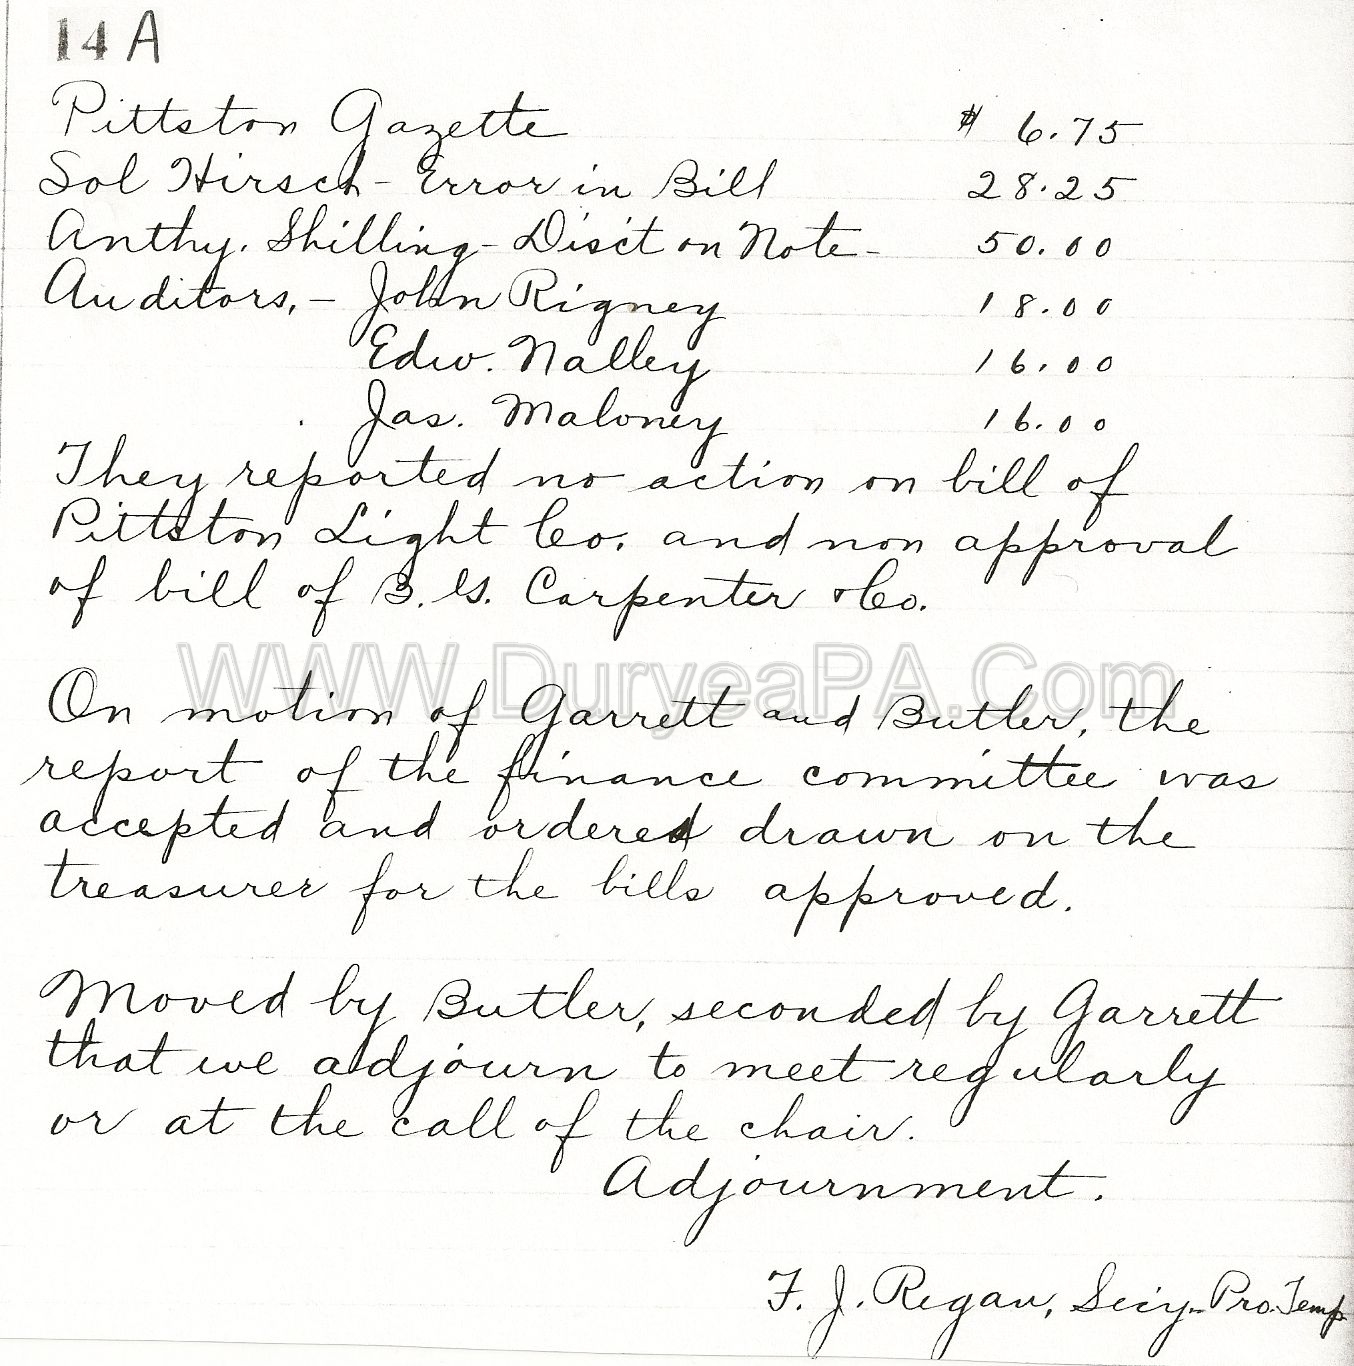 14 A
Pittston Gazette $ 6.75
Sol Hirsch - Error in Bill 28.25
Anthy. Shilling - Disc't on Note - 50.00
Auditors, - John Rigney 18.00
Edw. Nalley 16.00
Jas. Maloney 16.00
They reported no action on bill of
Pittston Light Co. and non approval
of bill of B. G. Carpenter & Co.
WWW.DuryeaPA.Com
On motion of Garrett and Butler, the
report of the finance committee was
accepted and ordered drawn on the
treasurer for the bills approved.
Moved by Butler, seconded by Garrett
that we adjourn to meet regularly
or at the call of the chair.
Adjournment.
F. J. Regan, Sec'y - Pro. Temp